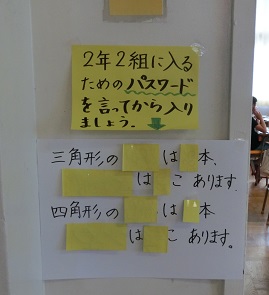 2年2組に入る
ためのパスワード
を言ってから入り
ましょう。
三角形の は 本、
は こ あります。
四角形の は 本
は こ あります。